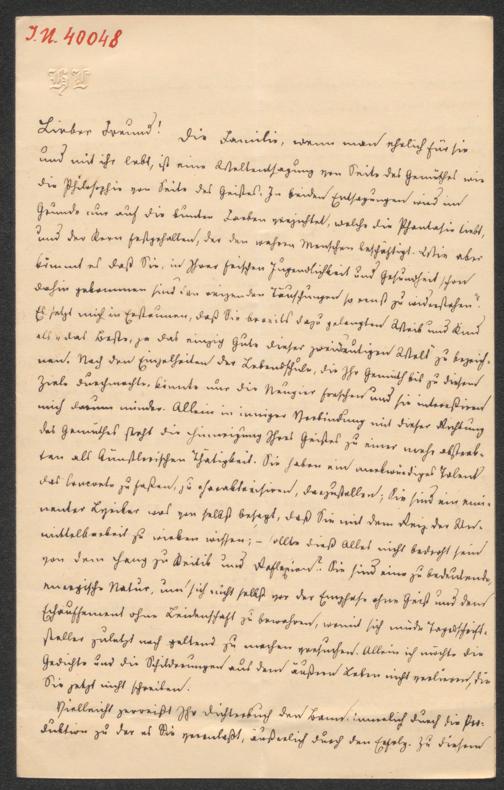 I.N. 40048
HL
Lieber Freund! Die Familie, wenn man ehrlich für sie
und mit ihr lebt, ist eine Weltentsagung von Seite des Gemüthes wie
die Philosophie von Seite des Geistes. In beiden Entsagungen wird im
Grunde nur auf die bunten Farben verzichtet, welche die Phantasie liebt,
und der Kern festgehalten, der den wahren Menschen beschäftigt. Wie aber
kömmt es daß Sie, in Ihrer frischen Jugendlichkeit und Gesundheit schon
dahin gekommen sind den reizenden Täuschungen so ernst zu widerstehen?
Es setzt mich in Erstaunen, daß Sie bereits dazu gelangten Weib und Kind
als das Beste, ja das einzig Gute dieser zweideutigen Welt zu bezeich-
nen. Nach den Einzelheiten der Lebensschule, die Ihr Gemüth bis zu diesem
Ziele durchmachte, könnte nur die Neugier forschen und sie interessiren
mich darum minder. Allein in inniger Verbindung mit dieser Richtung
des Gemüthes steht die Hinneigung Ihres Geistes zu einer mehr abstrak-
ten als künstlerischen Thätigkeit. Sie haben ein merkwürdiges Talent
das Concrete zu fassen, zu charakterisiren, darzustellen; Sie sind ein emi-
nenter Lyriker was von selbst besagt, daß Sie mit dem Reiz der Un-
mittelbarkeit zu wirken wissen; – sollte dieß Alles nicht bedroht sein
von dem Hang zu Kritik und Reflexion? Sie sind eine zu bedeutende,
energische Natur, um sich nicht selbst vor der Emphase ohne Geist und dem
Echauffement ohne Leidenschaft zu bewahren, womit sich müde
steller zuletzt noch geltend zu machen versuchen. Allein ich möchte die
Gedichte und die Schilderungen aus dem äußern Leben nicht verlieren, die
Sie jetzt nicht schreiben.
Vielleicht zerreißt Ihr Dichterbuch den Bann: innerlich durch die Pro-
duktion zu der es Sie veranlaßt, äußerlich durch den Erfolg. Zu diesem